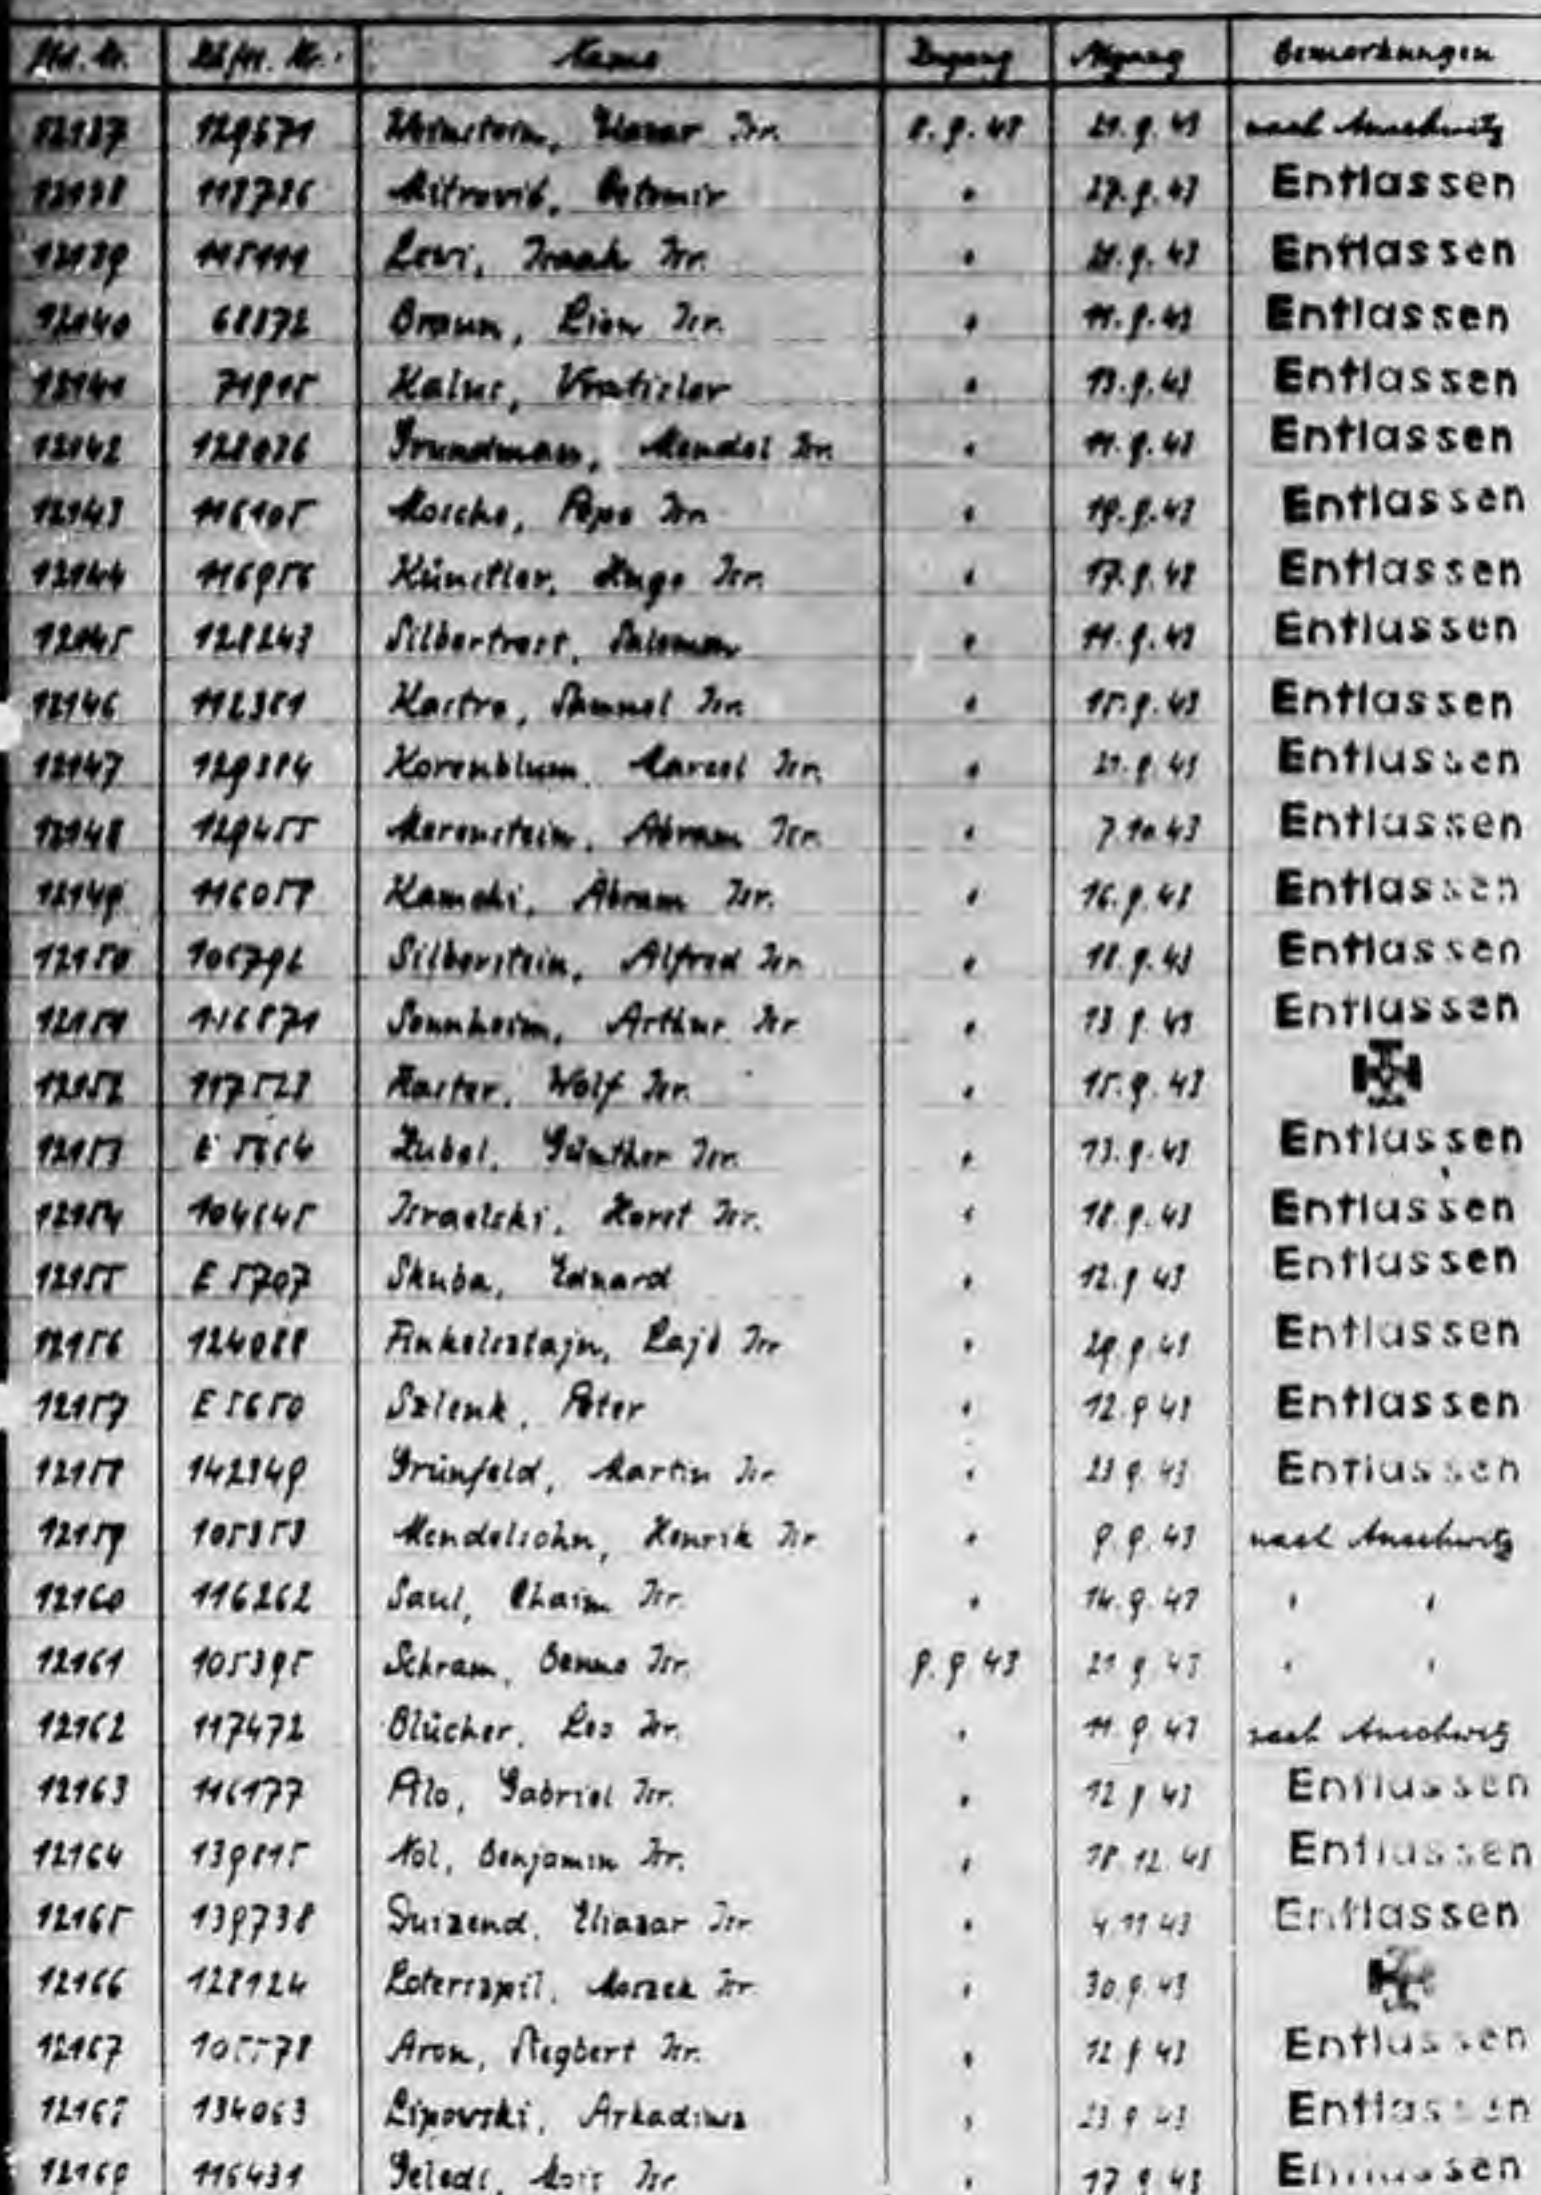 Lfd. Nr. Häftl. Nr. Name Zugang Abgang Bemerkungen
12137 129571 Weinstein, Elazar Isr. 8.9.43 21.9.43 nach Auschwitz
12138 Mitrović, " 27.9.43 Entlassen
12139 115111 Levi, Isaak Isr. " 21.9.43 Entlassen
12140 68372 Braun, Lion Isr. " 11.9.43 Entlassen
12141 71915 Kalus, Vratislav " 13.9.43 Entlassen
12142 128036 Grundman, Mendel Isr. " 11.9.43 Entlassen
12143 116105 Mosche, Pepo Isr. " 19.9.43 Entlassen
12144 116956 Künstler, Hugo Isr. " 17.9.43 Entlassen
12145 128243 Silbertrest, Salomon " 11.9.43 Entlassen
12146 112381 Kastro, Samuel Isr. " 15.9.43 Entlassen
12147 129384 Korenblum, Marcel Isr. " 21.9.43 Entlassen
12148 129455 Morenstein, Abram Isr. " 7.10.43 Entlassen
12149 Kamchi, Abram Isr. " 16.9.43 Entlassen
12150 105796 Silberstein, Alfred Isr. " 18.9.43 Entlassen
12151 116871 Sonnheim, Arthur Isr. " 13.9.43 Entlassen
12152 117523 Haster, Wolf Isr. " 15.9.43
12153 Zubel, Günther Isr. " 13.9.43 Entlassen
12154 Israelski, Horst Isr. " 18.9.43 Entlassen
12155 E 5707 Skuba, Eduard " 12.9.43 Entlassen
12156 124088 Finkelsztajn, Lajb Isr. " 29.9.43 Entlassen
12157 E 5650 Szlenk, Peter " 12.9.43 Entlassen
12158 142349 Grünfeld, Martin Isr. " 23.9.43 Entlassen
12159 105353 Mendelsohn, Henrik Isr. " 9.9.43 nach Auschwitz
12160 116262 Saul, Chaim Isr. " 14.9.43 " "
12161 105395 Schram, Benno Isr. 9.9.43 21.9.43 " "
12162 117472 Blücher, Leo Isr. " 11.9.43 nach Auschwitz
12163 116177 Pilo, Gabriel Isr. " 12.9.43 Entlassen
12164 139815 Nol, Benjamin Isr. " 18.12.43 Entlassen
12165 139738 Duizend, Eliazar Isr. " 4.11.43 Entlassen
12166 128124 Loterszpil, Moszek Isr. " 30.9.43
12167 Aron, Siegbert Isr. " 12.9.43 Entlassen
12168 134063 Lipowski, Arkadiusz " 23.9.43 Entlassen
12169 116431 Isr. " 17.9.43 Entlassen